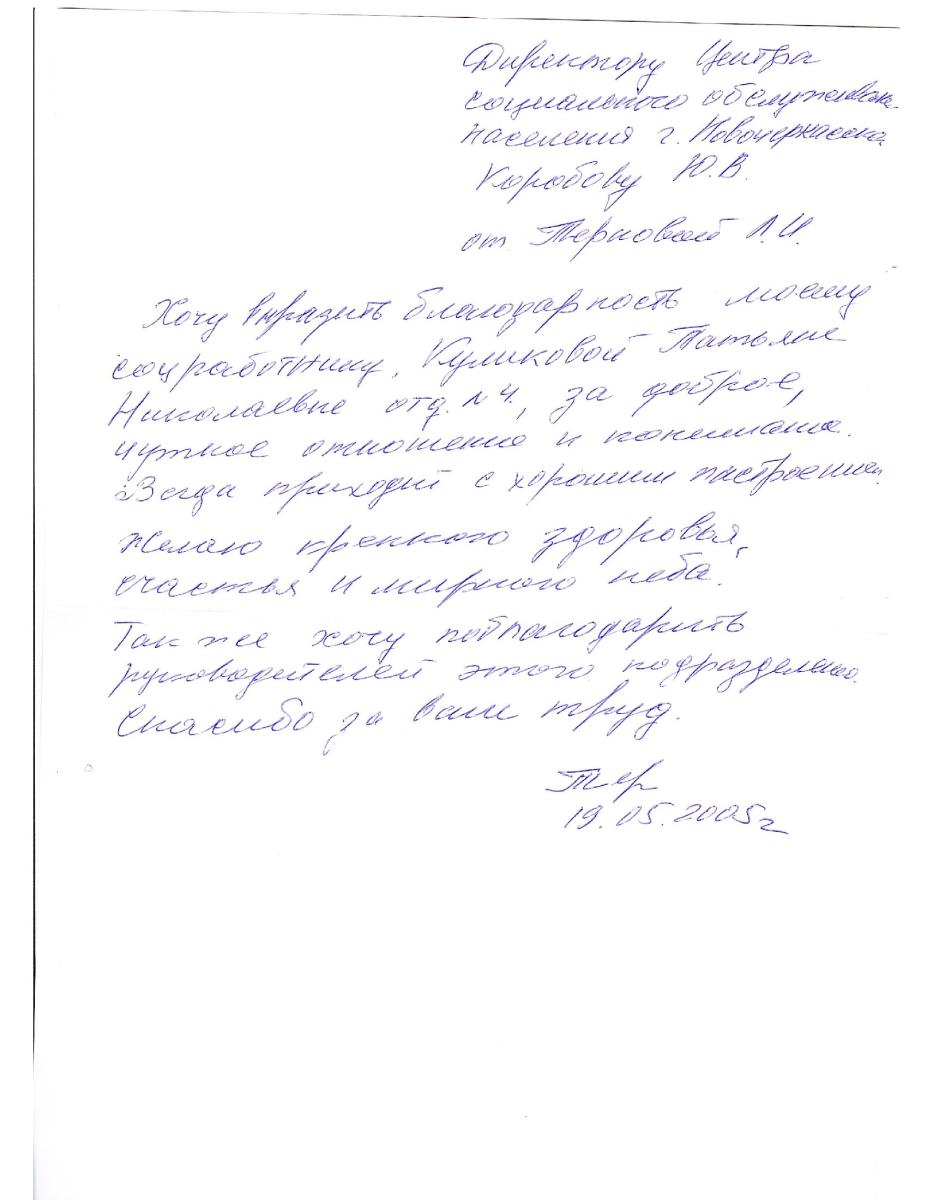 Директору Центра
социального обслуживания
населения г. Новочеркасска
Коробову Ю.В.
от Терновой Л.И.
Хочу выразить благодарность моему
соцработнику, Куликовой Татьяне
Николаевне отд. №4, за доброе,
чуткое отношение и понимание.
Всегда приходит с хорошим настроением.
Желаю крепкого здоровья,
счастья и мирного неба.
Так же хочу поблагодарить
руководителей этого подразделения.
Спасибо за ваш труд.
Тер
19.05.2005г